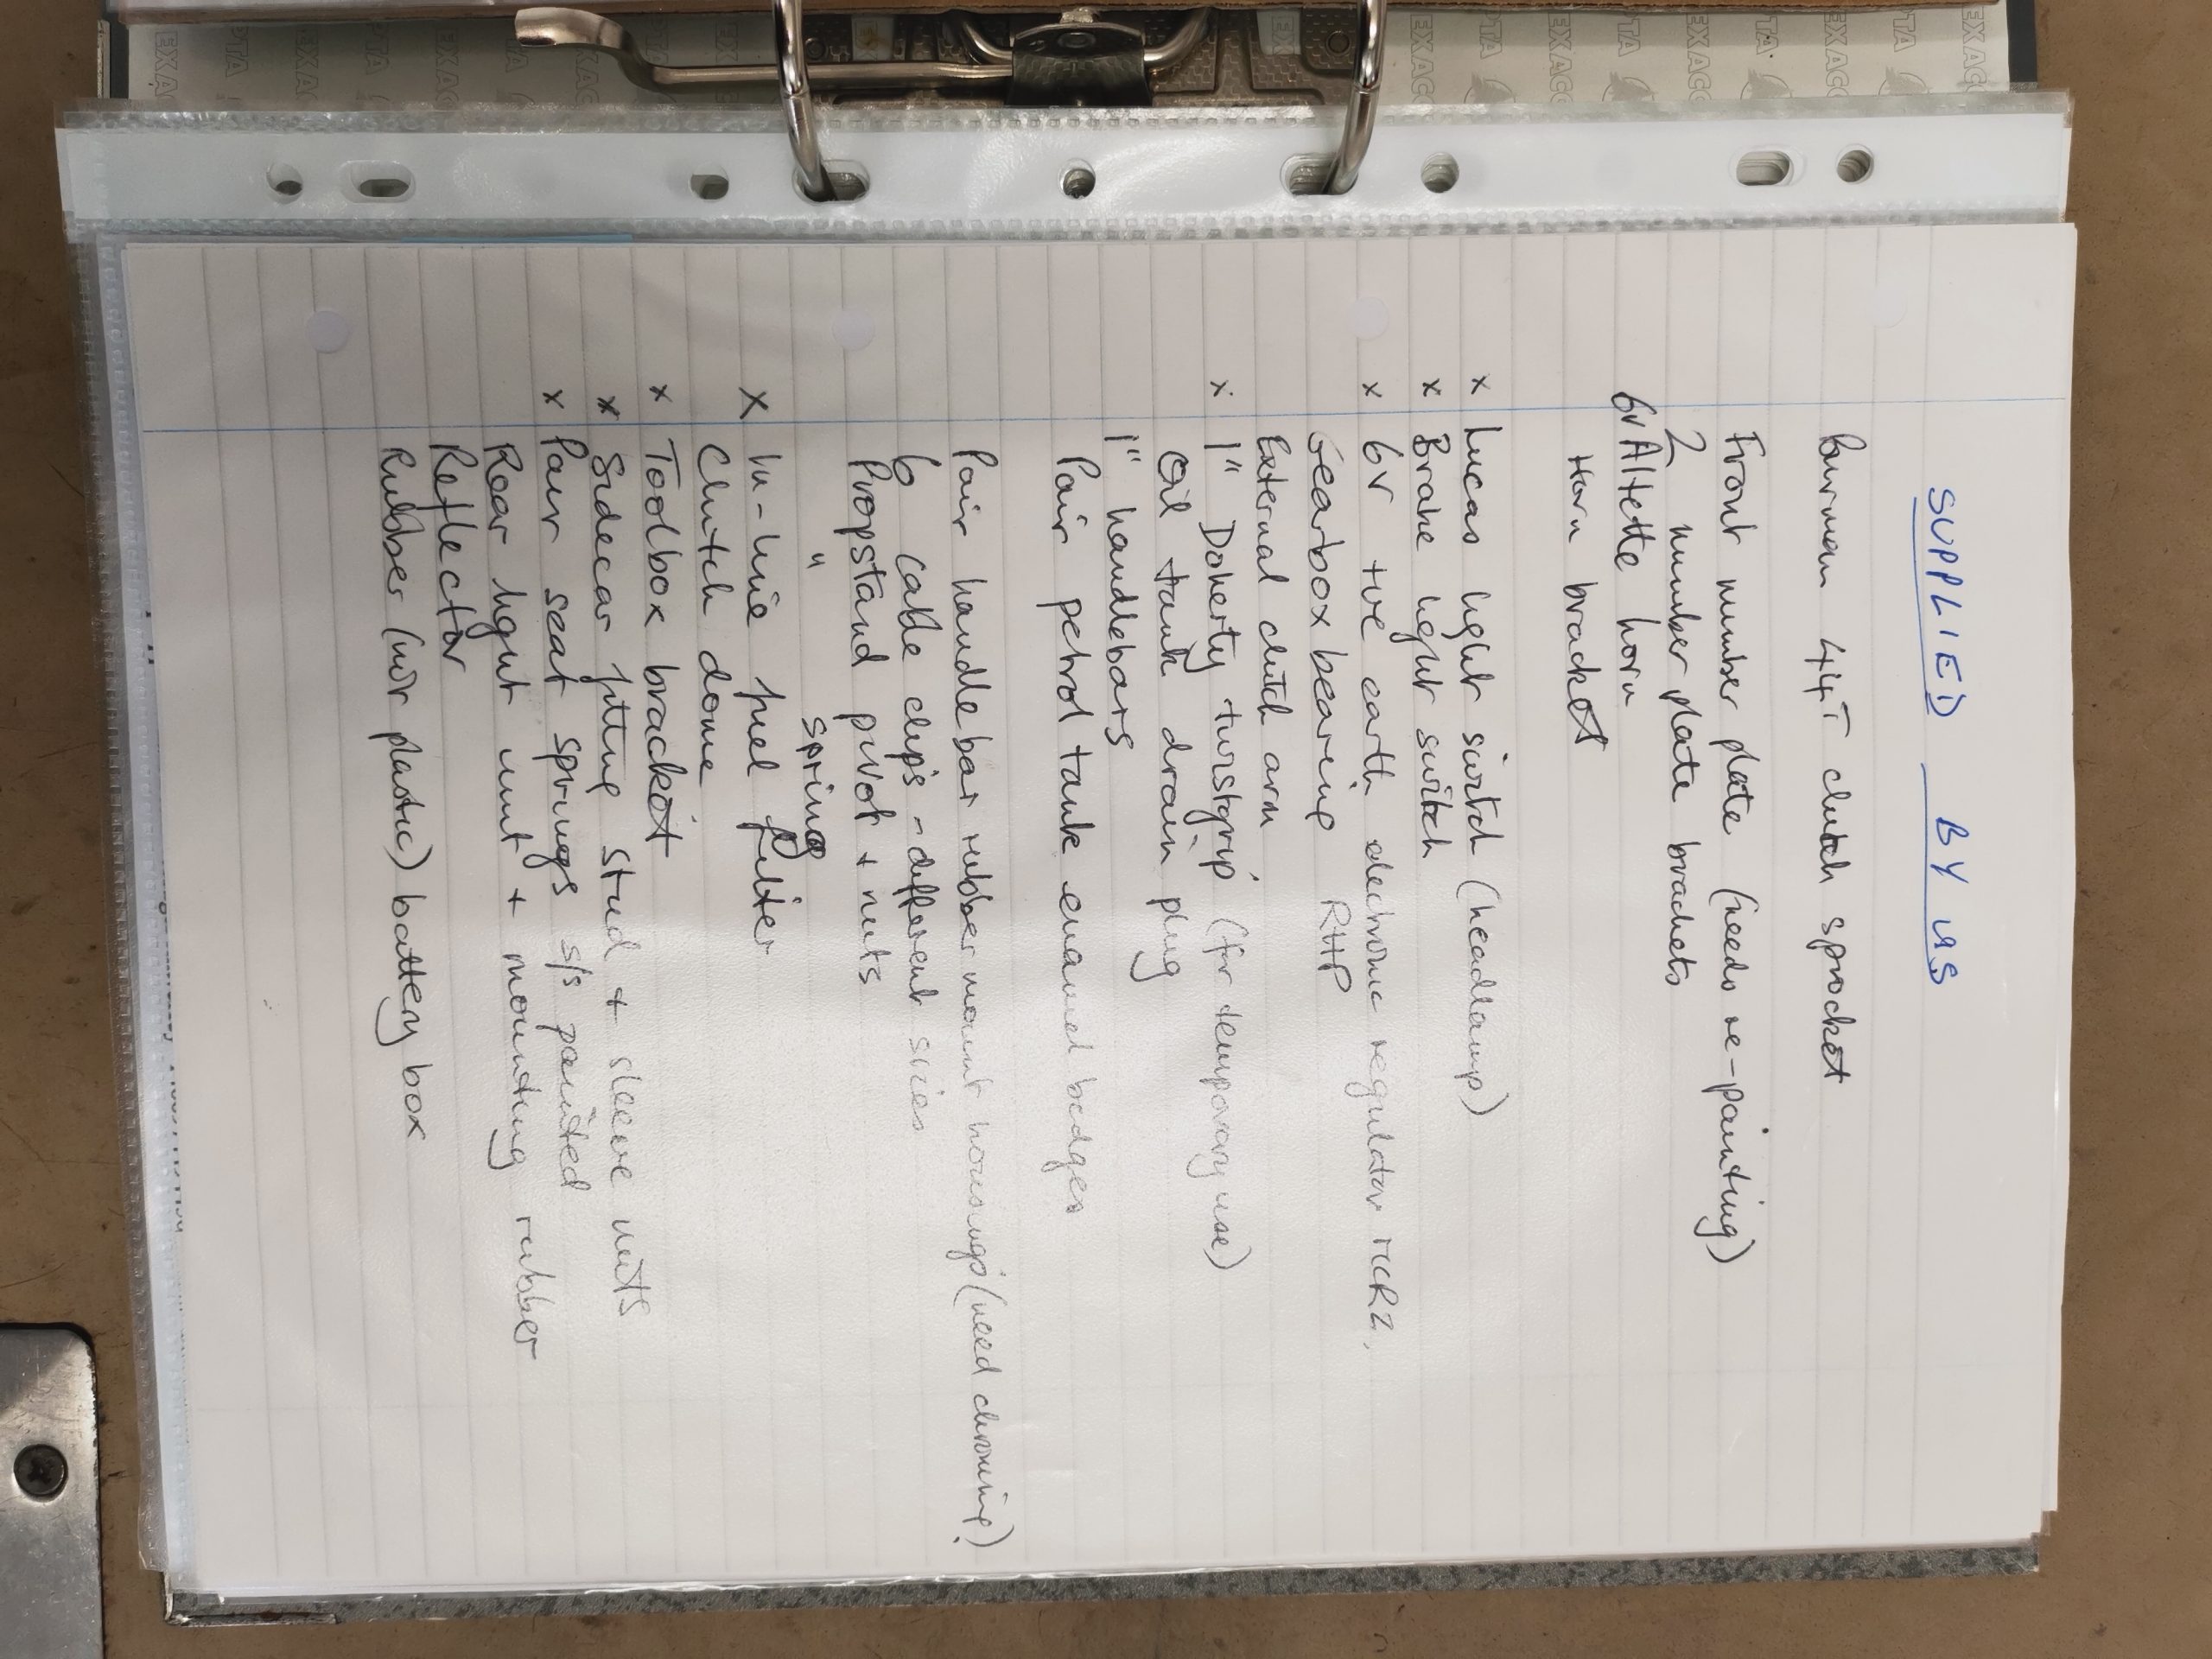 SUPPLIED BY US
Burman 44T clutch sprocket
Front number plate (needs re-painting)
2 number plate brackets
6v Altette horn
Horn bracket
x Lucas light switch (headlamp)
x Brake light switch
x 6v +ve earth electronic regulator
Gearbox bearing RHP
External clutch arm
x 1" Doherty twistgrip (for temporary use)
Oil tank drain plug
1" handlebars
Pair petrol tank enamel badges
Pair handlebar rubber mount housings (need chroming)
6 cable clips - different sizes
Propstand pivot + nuts
" spring
x In-line fuel filter
Clutch dome
x Toolbox bracket
x Sidecar fitting stud + sleeve nuts
x Pair seat springs s/s painted
Rear light unit + mounting rubber
Reflector
Rubber (nor plastic) battery box